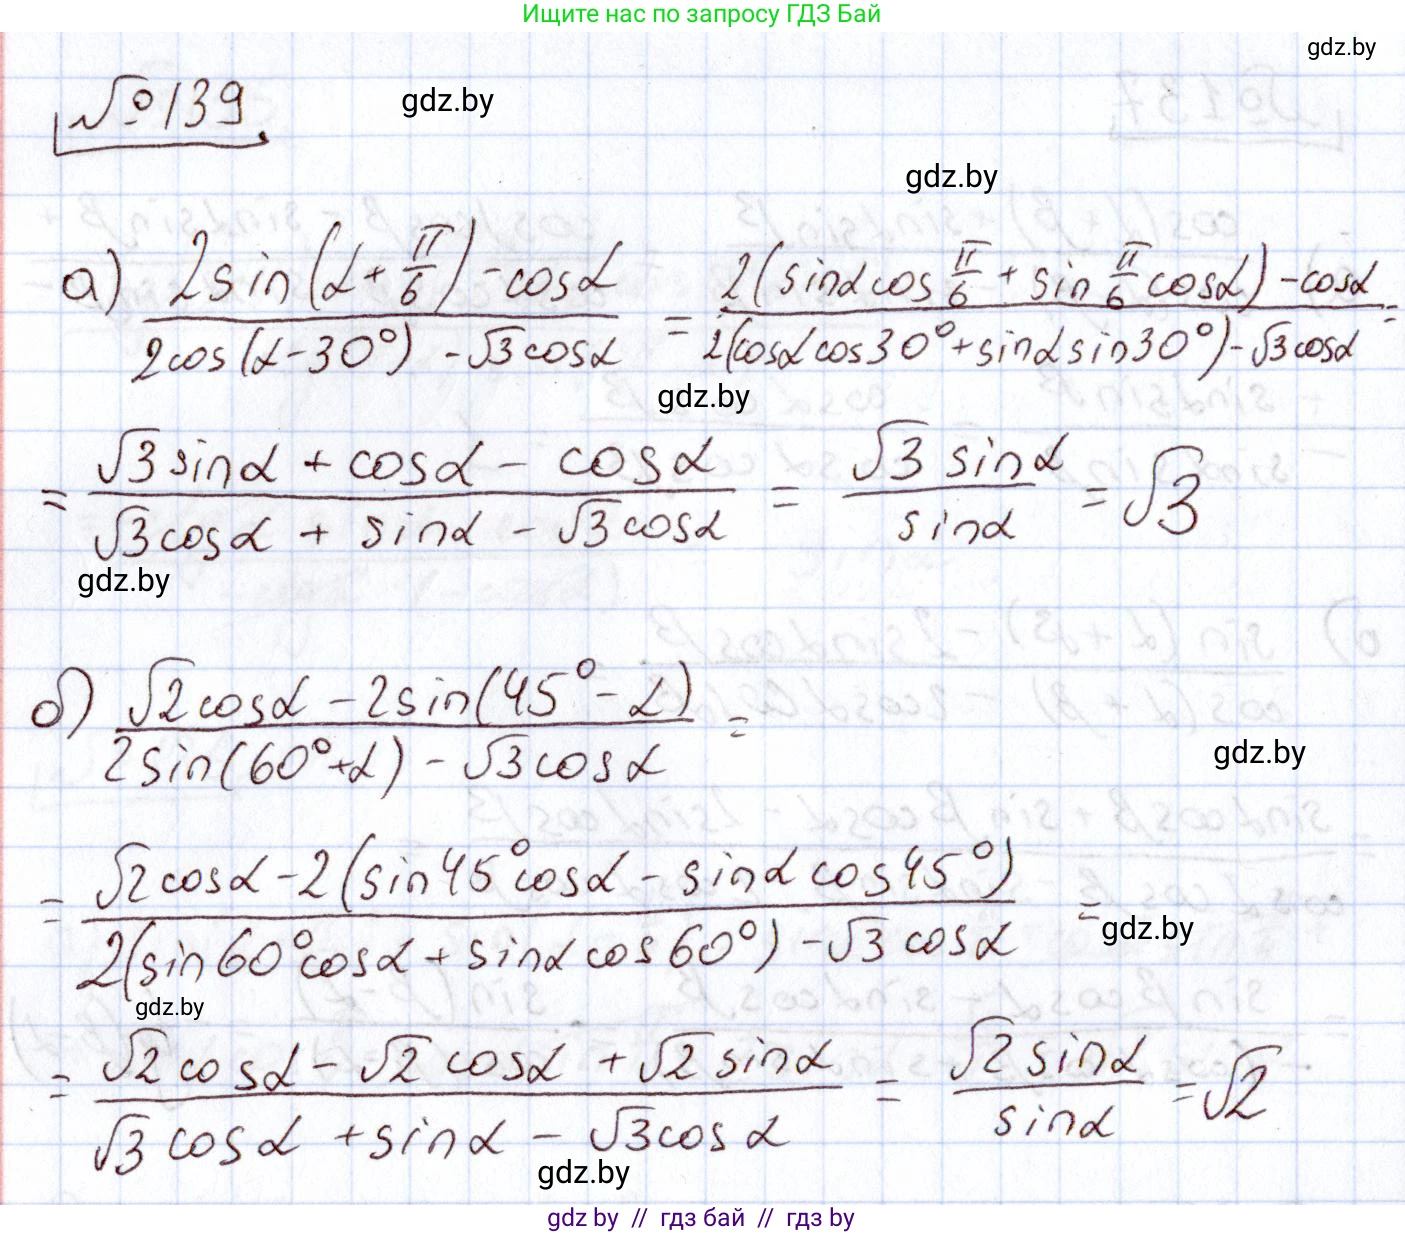 Ищите нас по запросу ГДЗ Бай
gdz.by
№139
gdz.by
gdz.by
а) (2sin(α + π/6) - cosα)/(2cos(α - 30°) - √3cosα) = (2(sinα cos π/6 + sin π/6 cosα) - cosα)/(2(cosα cos30° + sinα sin30°) - √3cosα) =
gdz.by
= (√3 sinα + cosα - cosα)/(√3cosα + sinα - √3cosα) = (√3 sinα)/(sinα) = √3
gdz.by
б) (√2cosα - 2sin(45° - α))/(2sin(60° + α) - √3cosα) =
gdz.by
= (√2cosα - 2(sin45°cosα - sinα cos45°))/(2(sin60°cosα + sinα cos60°) - √3cosα) =
gdz.by
gdz.by
= (√2cosα - √2cosα + √2sinα)/(√3cosα + sinα - √3cosα) = (√2sinα)/(sinα) = √2
gdz.by
gdz by // гдз бай // гдз by